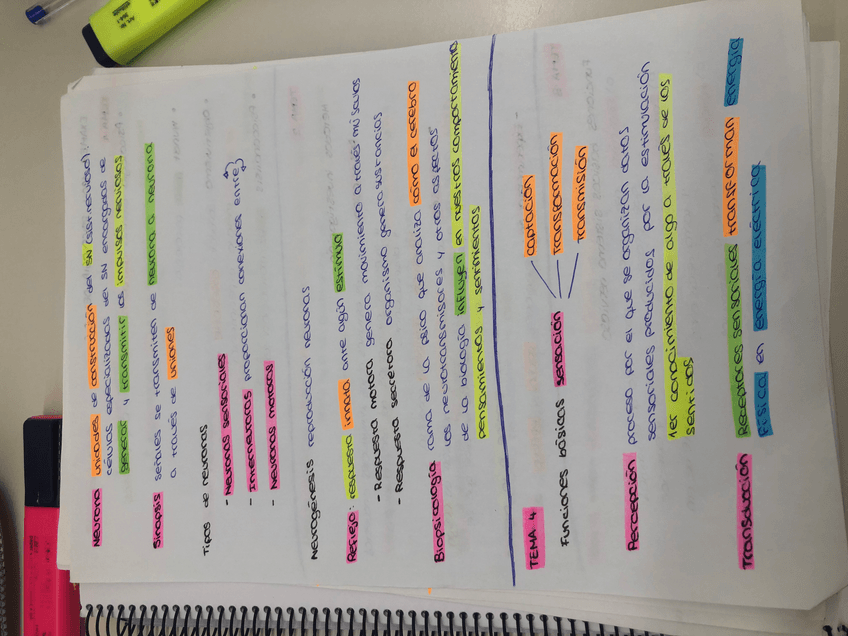 Neurona unidades de construcción del SN (sist. nervioso)
células especializadas del SN encargadas de
generar y transmitir los impulsos nerviosos
Sinapsis señales se transmiten de neurona a neurona
a través de uniones
Tipos de neuronas
- Neuronas sensoriales
- Interneuronas proporcionan conexiones entre
- Neuronas motoras
Neurogénesis reproducción neuronas
Reflejo: respuesta innata ante algún estímulo
- Respuesta motora genera movimiento a través músculos
- Respuesta secretora organismo genera sustancias
Biopsicología rama de la psico que analiza como el cerebro
los neurotransmisores y otros aspectos
de la biología influyen en nuestros comportamientos
pensamientos y sentimientos
TEMA 4
captación
Funciones básicas sensación transformación
transmisión
Percepción proceso por el que se organizan datos
sensoriales producidos por la estimulación
1er conocimiento de algo a través de los
sentidos
Transducción Receptores sensoriales transforman energía
física en energía eléctrica